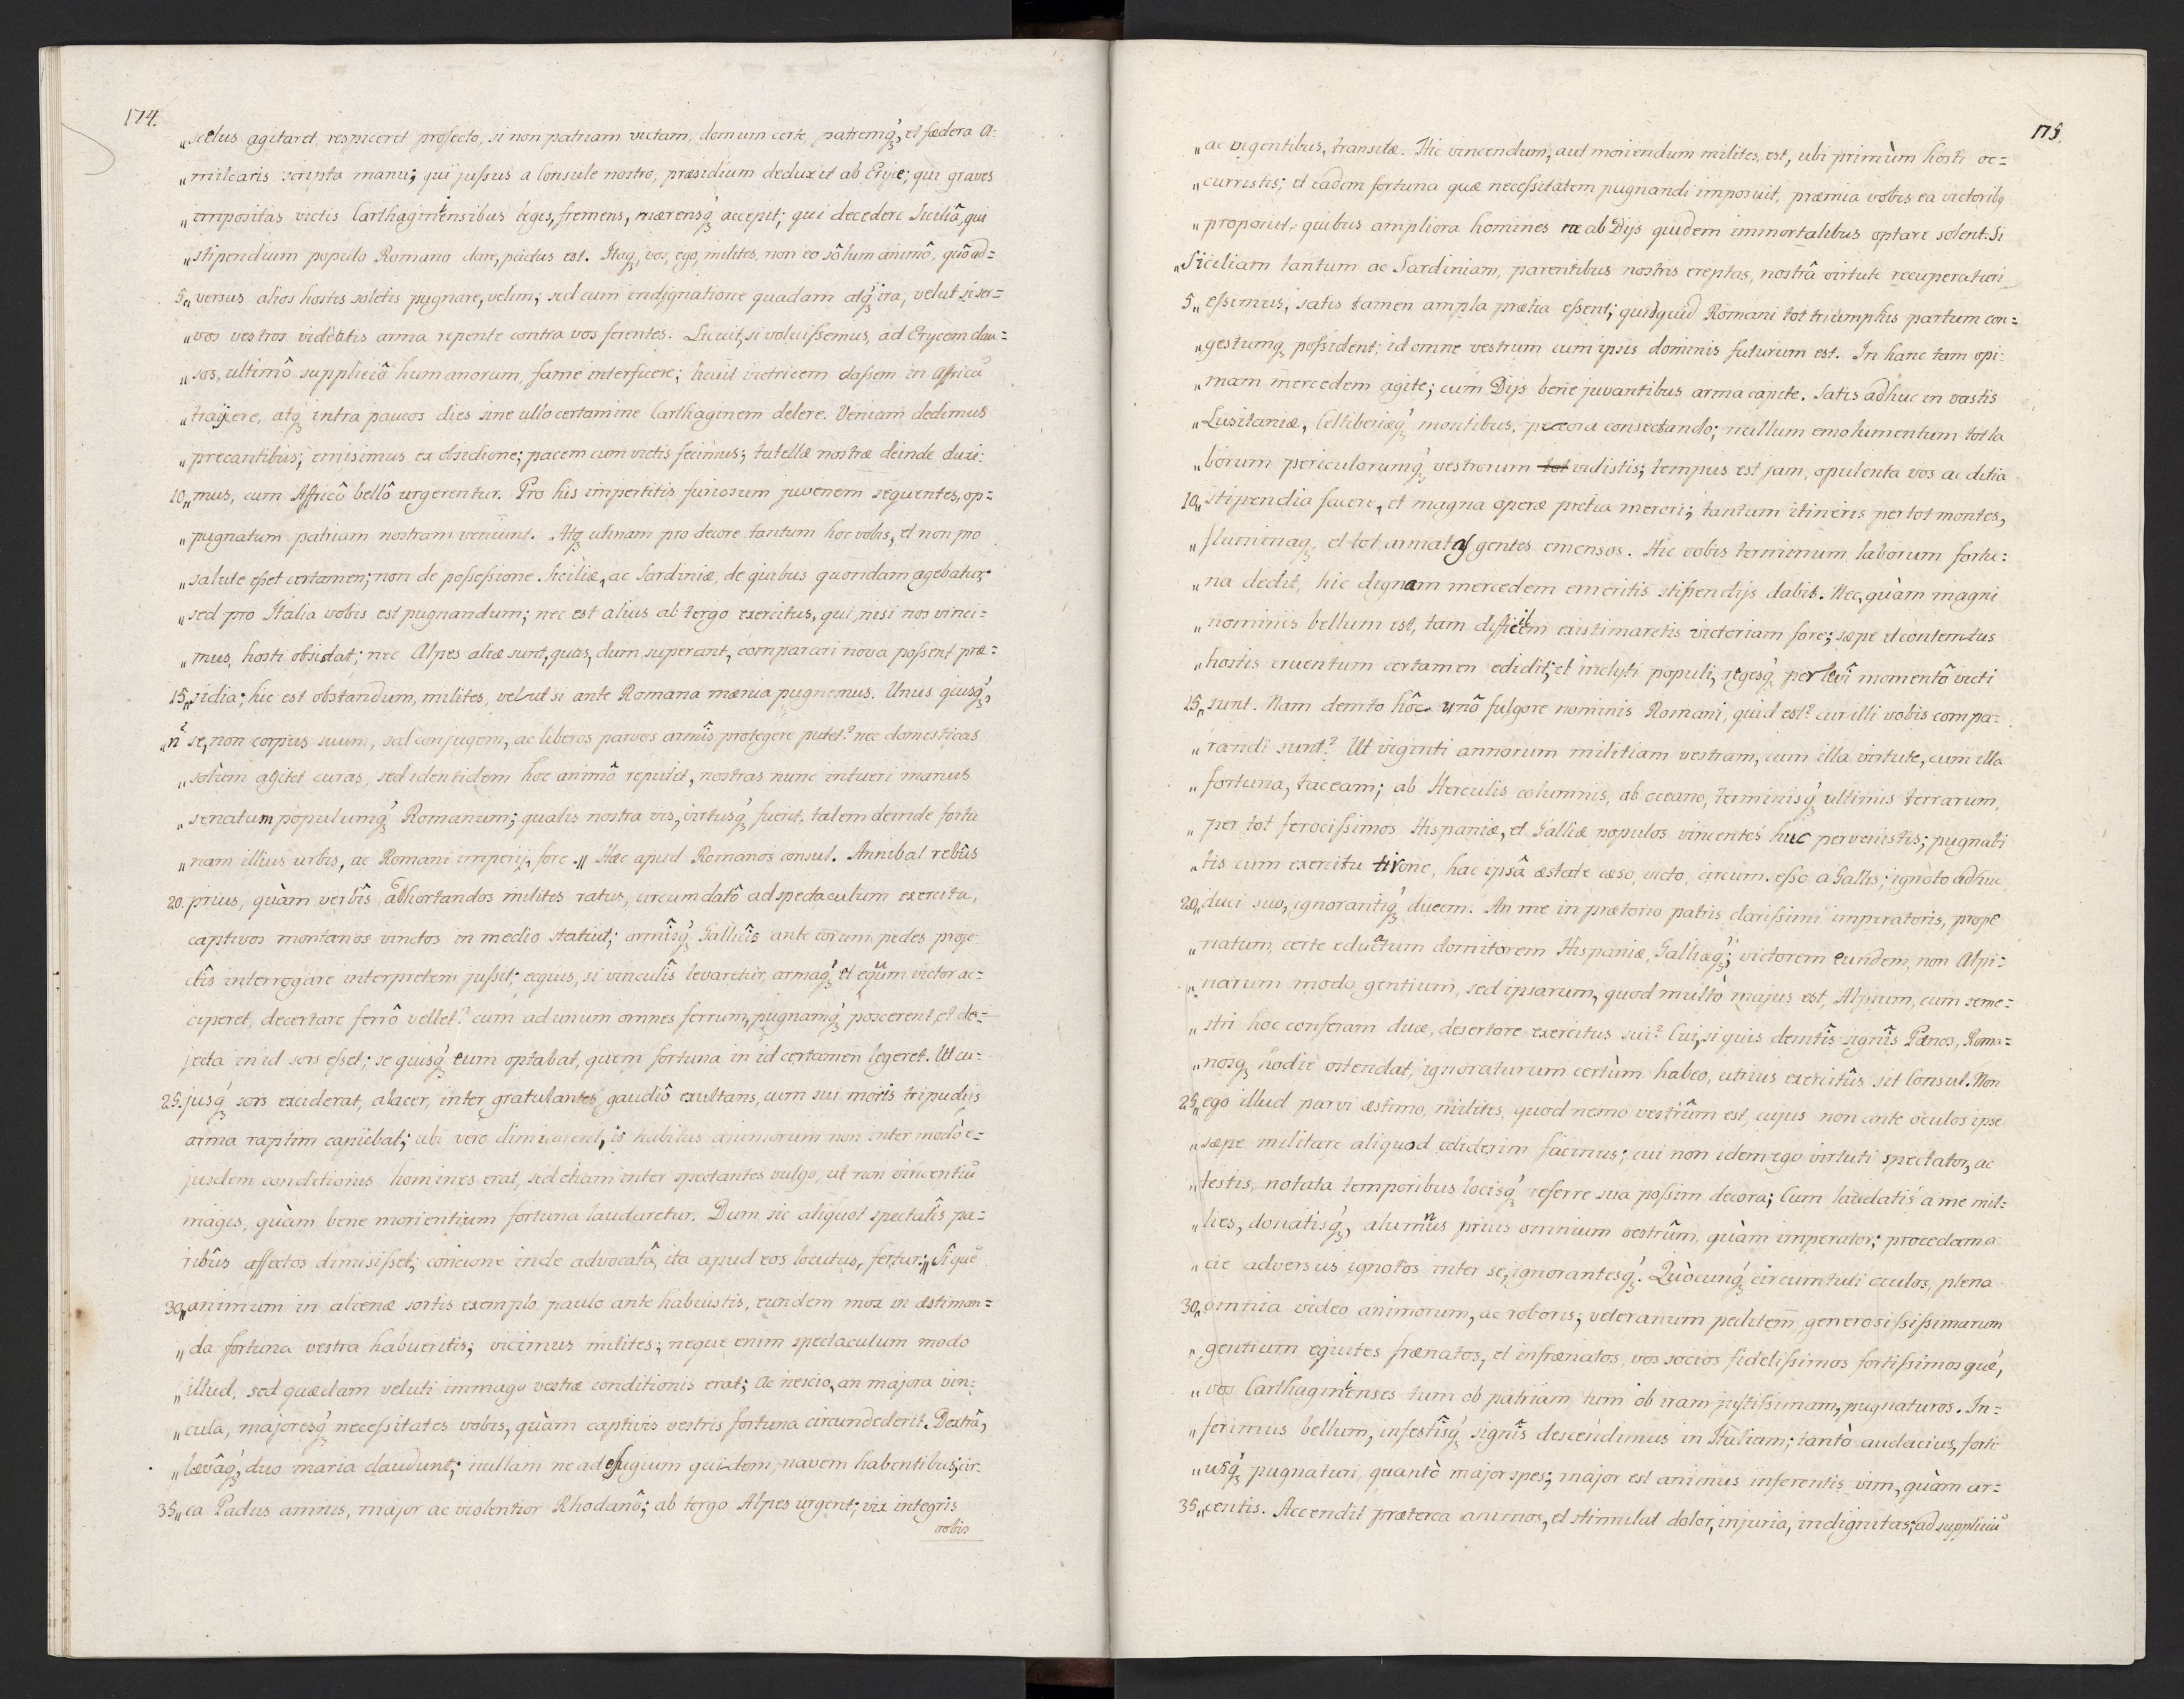 174.
„scelus agitaret respiceret profecto, si non patriam victam, domum certe, patremq́ꝫ, et fœdera A-
„milcaris scripta manu; qui jussus a Consule nostro, præsidium deduxit ab Eryce; qui graves
„impositas victis Carthaginiensibus leges, fremens, mærensq́ꝫ accepit; qui decedere Siciliâ, qui
„stipendium populo Romano dare, pactus est. Itaqꝫ, vos, ego, milites, non eo sôlum animô, quô ad-
5„versus alios hostes soletis pugnare, velim; sed cum indignatione quadam atq́ꝫ ira, velut si ser=
„vos vestros videatis arma repente contra vos ferentes. Licuit, si voluissemus, ad Erycem clau=
„sos, ultimô suppliciô humanorum, fame interficere; licuit victricem classem in Africã
„traijcere, atqꝫ intra paucos dies sine ullo certamine Carthaginem delere. Veniam dedimus
„precantibus; emisimus ex obsidione; pacem cum victis fecimus; tutellæ nostræ deinde duxi:
10„mus, cum Affricô bellô urgerentur. Pro his impertitis furiosum juvenem sequentes, op=
„pugnatum patriam nostram veniunt. Atqꝫ utinam pro decore tantum hoc vobis, et non pro
„salute esset certamen; non de possessione Siciliæ, ac Sardiniæ, de quibus quondam agebatur,
„sed pro Italia vobis est pugnandum; nec est alius ab tergo exercitus, qui, nisi nos vinci=
„mus, hosti obsistat; nec Alpes aliæ sunt, quas, dum superant, comparari nova possent præ=
15„sidia; hic est obstandum, milites, velut si ante Romana mænia pugnemus. Unus quisq́ꝫ,
„se, non corpus suum, sed conjugem, ac liberos parvos armîs protegere putet? nec domesticas
„solum agitet curas, sed identidem hoc animô reputet, nostras nunc intueri manus
„senatum populumq́ꝫ Romanum; qualis nostra vis, virtusq́ꝫ fuerit, talem deinde fortu
„nam illius urbis, ac Romani imperij, fore.„ Hæc apud Romanos consul. Annibal rebûs
20. prius, quàm verbîs, adhortandos milites ratus, circumdatô ad spectaculum exercitu,
captivos montanos vinctos in medio statuit; armîsq́ꝫ Gallicîs ante eorum pedes proje
ctîs interrogare interpretem jussit; ecquis, si vinculîs levaretur, armaq́ꝫ et equum victor ac=
ciperet, decertare ferrô vellet? cum ad unum omnes ferrum, pugnamq́ꝫ poscerent, et de=
jecta in id sors esset; se quisq́ꝫ eum optabat, quem fortuna in id certamen legeret. Ut cu=
25. jusq́ꝫ sors exciderat, alacer, inter gratulantes gaudiô exultans, cum sui moris tripudiis
arma raptim capiebat; ubi vero dimicarent, is habitus animorum non inter modò e=
jusdem conditionis homines erat, sed etiam inter spectantes vulgo, ut non vincentiũ
magis, quàm bene morientium fortuna laudaretur. Dum sic aliquot spectatîs pa=
ribûs affectos dimisisset; concione inde advocatâ, ita apud eos locutus, fertur:„ Si quẽ
30„animum in alienæ sortis exemplo paulo ante habuistis, eundem mox in æstiman=
„da fortuna vestra habueritis; vicimus milites; neque enim spectaculum modo
„illud, sed quædam veluti immago vestræ conditionis erat; Ac nescio, an majora vin:
„cula, majoresq́ꝫ necessitates vobis, quàm captivis vestris fortuna circundederit. Dextrâ,
„lævâq́ꝫ, duo maria claudunt; nullam ne ad effugium quidem, navem habentibus; cir-
35„ca Padus amnis, major ac violentior Rhodanô; ab tergo Alpes urgent; vix integris
vobis
175.
„ac vigentibus, transitæ. Hic vincendum, aut moriendum milites, est, ubi primùm hosti oc=
„curristis; et eadem fortuna quæ necessitatem pugnandi imposuit, præmia vobis ea victoribꝫ
„proponit, quibus ampliora homines ab Dijs quidem immortalibus optare solent. Si
„Siciliam tantum ac Sardiniam, parentibus nostris ereptas, nostrâ virtute recuperaturi
5„essemus, satis tamen ampla prætia essent; quidquid Romani tot triumphis partum con=
„gestumqꝫ possident; id omne vestrum cum ipsis dominis futurum est. In hanc tam opi:
„mam mercedem agite; cum Dijs bene juvantibus arma capite. Satis adhuc in vastis
„Lusitaniæ, Celtiberiæq́ꝫ montibus, pecora consectando; nullum emolumentum tot la
„borum periculorumq́ꝫ vestrorum vidistis; tempus est jam, opulenta vos ac ditia
10„stipendia facere, et magna operæ pretia mereri; tantum itineris per tot montes,
„fluminaqꝫ, et tot armatas gentes emensos. Hic vobis terminum laborum fortu:
„na dedit, hic dignam mercedem emeritis stipendijs dabit. Nec, quàm magni
„nominis bellum est, tam difficilem existimaretis victoriam fore; sæpe et contemtus
„hostis cruentum certamen edidit; et inclyti populi, regesq́ꝫ perlevi momentô victi
15„sunt. Nam demto hôc unô fulgore nominis Romani, quid est? cur illi vobis compa-
„randi sunt? Ut viginti annorum militiam vestram, cum illa virtute, cum illa
„fortuna, taceam; ab Herculis columnis, ab oceano, terminisq́ꝫ ultimis terrarum,
„per tot ferocissimos Hispaniæ, et Galliæ populos vincentes huc pervenistis; pugnabi
„tis cum exercitu tirone, hac ipsâ æstate cæso, victo, circumsesso a Gallis; ignoto adhuc
20„duci suo, ignorantiq́ꝫ ducem. An me in prætorio patris clarissimi imperatoris, prope
„natum, certe eductum domitorem Hispaniæ, Galliæq́ꝫ; victorem eundem, non Alpi=
„narum modo gentium, sed ipsarum, quod multò majus est, Alpium, cum seme=
„stri hoc conferam duce, desertore exercitus sui? Cui, si quis demtîs signîs Pænos, Roma=
„nosqꝫ hodie ostendat, ignoraturum certùm habeo, utrius exercitûs sit Consul. Non
25„ego illud parvi æstimo, milites, quod nemo vestrûm est, cujus non ante oculos ipse
„sæpe militare aliquod ediderim facinus; cui non idem ego virtuti spectator, ac
„testis, notata temporibus locisq́ꝫ referre sua possim decora; Cum laudatis a me mil-
„lies, donatisq́ꝫ, alumnus prius omnium vestrûm, quàm imperator; procedam a
„cie adversus ignotos inter se, ignorantesq́ꝫ. Quòcunq́ꝫ circumtuli oculos, plena
30„omnia video animorum, ac roboris; veteranum peditem, generosissimarum
„gentium equites frænatos, et infrænatos, vos socios fidelissimos fortissimosque,
„vos Carthaginienses tum ob patriam, tum ob iram justissimam, pugnaturos. In=
„ferimus bellum, infestîsq́ꝫ signîs descendimus in Italiam; tantò audacius, forti
„usq́ꝫ pugnaturi, quantò major spes; major est animus inferentis vim, quàm ar=
35„centis. Accendit præterea animos, et stimulat dolor, injuria, indignitas; ad suppliciũ